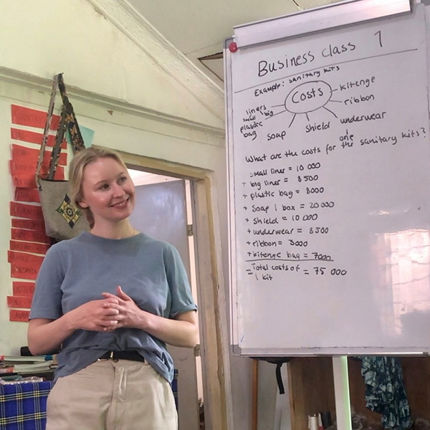 Business class 1
Example: sanitary kits
Costs
kitenge
ribbon
underwear
shield
soap
plastic bag
liners
small big
What are the costs for one of the sanitary kits?
small liner = 10 000
+ big liner = 8 500
+ plastic bag = 8000
+ soap 1 box = 20 000
+ shield = 10 000
+ underwear = 8 500
+ ribbon = 3000
+ kitenge bag = 7000
= Total costs of 1 kit = 75 000